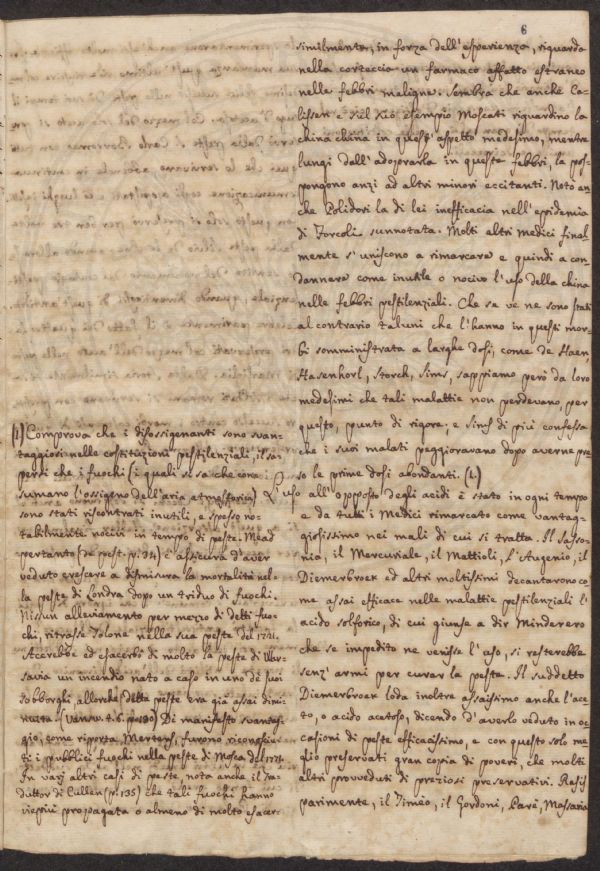 6
similmente, in forza dell'esperienza, riguarda
nella corteccia un farmaco affatto estraneo
nelle febbri maligne. Sembra che anche Ca-
lissen e sul suo esempio Moscati riguardino la
china china in quest'aspetto medesimo, mentre
lungi dall'adoperarla in queste febbri, la pos-
pongono anzi ad altri minori eccitanti. Notò an-
che Polidori la di lei inefficacia nell'epidemia
di Torcoli sunnotata. Molti altri medici final-
mente s'uniscono a rimarcare e quindi a con-
dannare come inutile o nocivo l'uso della china
nelle febbri pestilenziali. Che se ve ne sono stati
al contrario taluni che l'hanno in questi mor-
bi somministrata a larghe dosi, come de Haen,
Hasenhorl, Storck, Sims, sappiamo però da loro
medesimi che tali malattie non perdevano, per
questo, punto di rigore, e Sims di più confessa
che i suoi malati peggioravano dopo averne pre-
so le prime dosi abondanti. (1.)
L'uso all'opposto degli acidi è stato in ogni tempo
e da tutti i Medici rimarcato come vantag-
giosissimo nei mali di cui si tratta. Il Sasso-
nia, il Mercuriale, il Mattioli, l'Augenio, il
Diemerbroek ed altri moltissimi decantarono co-
me assai efficace nelle malattie pestilenziali l'
acido solforico, di cui giunse a dir Minderero
che se impedito ne venisse l'uso, si resterebbe
senz'armi per curar la peste. Il suddetto
Diemerbroek loda inoltre assaissimo anche l'ace-
to, o acido acetoso, dicendo d'averlo veduto in oc-
casioni di peste efficacissimo, e con questo solo me-
glio preservati gran copia di poveri, che molti
altri provveduti di preziosi preservativi. Rasis
parimente, il Timèo, il Gordoni, Parè, Massaria
(1) Comprova che i disossigenanti sono svan-
taggiosi nelle costituzioni pestilenziali, il sa-
persi che i fuochi (i quali si sa che con-
sumano l'ossigeno dell'aria atmosferica)
sono stati riscontrati inutili, e spesso no-
tabilmente nocivi in tempo di peste. Mead
pertanto (de pest. p. 34) è assicura d'aver
veduto crescere a dismisura la mortalità nel-
la peste di Londra dopo un triduo di fuochi.
Nissun alleviamento per mezzo di detti fuo-
chi, ritrasse Tolone nella sua peste del 1721.
Acerebbe ed esacerbò di molto la peste di Var-
savia un incendio nato a caso in uno de' suoi
sobborghi, allorchè detta peste era già assai dimi-
nuita. Di manifesto svantag-
gio, come riporta Mertens, furono riconosciu-
ti i pubblici fuochi nella peste di Mosca del 1771.
In varj altri casi di peste, nota anche il Tra-
duttor di Cullen (p. 135) che tali fuochi hanno
vieppiù propagata o almeno di molto esacer-